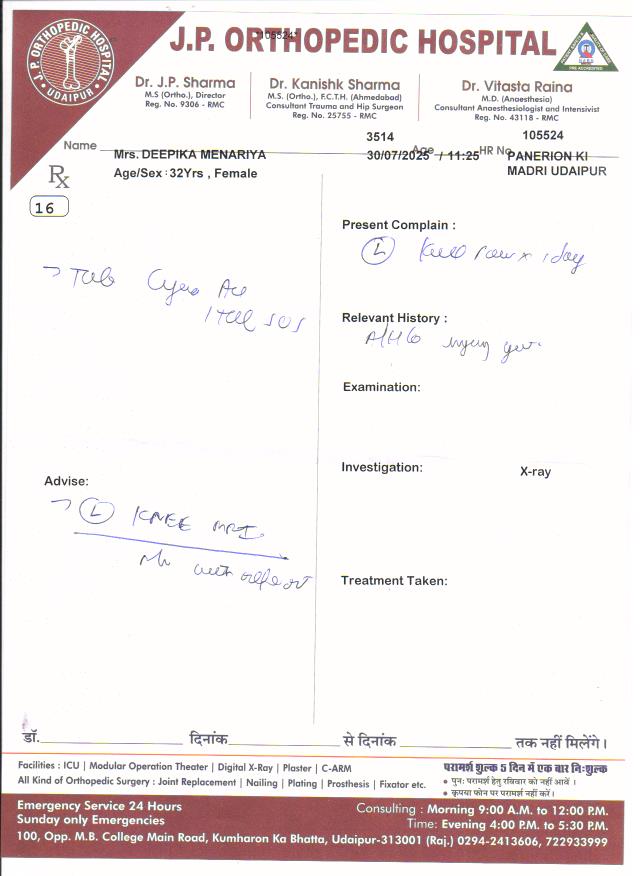 J.P. ORTHOPEDIC HOSPITAL
UDAIPUR
*105524*
J.P. ORTHOPEDIC HOSPITAL
PRE ACCREDITED
Dr. J.P. Sharma
M.S (Ortho.), Director
Reg. No. 9306 - RMC
Dr. Kanishk Sharma
M.S. (Ortho.), F.C.T.H. (Ahmedabad)
Consultant Trauma and Hip Surgeon
Reg. No. 25755 - RMC
Dr. Vitasta Raina
M.D. (Anaesthesia)
Consultant Anaesthesiologist and Intensivist
Reg. No. 43118 - RMC
3514 105524
Name Mrs. DEEPIKA MENARIYA Age 30/07/2025 / 11:25 HR No. PANERION KI
Rx Age/Sex : 32Yrs , Female MADRI UDAIPUR
16
Present Complain :
L 1 day
Tab
1 tab sos
Relevant History :
Examination:
Investigation: X-ray
Advise:
L KNEE MRI
Treatment Taken:
डॉ. दिनांक से दिनांक तक नहीं मिलेंगे।
Facilities : ICU | Modular Operation Theater | Digital X-Ray | Plaster | C-ARM
All Kind of Orthopedic Surgery : Joint Replacement | Nailing | Plating | Prosthesis | Fixator etc.
परामर्श शुल्क 5 दिन में एक बार निःशुल्क
• पुनः परामर्श हेतु रविवार को नहीं आवें ।
• कृपया फोन पर परामर्श नहीं करें ।
Emergency Service 24 Hours
Sunday only Emergencies
Consulting : Morning 9:00 A.M. to 12:00 P.M.
Time: Evening 4:00 PM to 5:30 P.M.
100, Opp. M.B. College Main Road, Kumharon Ka Bhatta, Udaipur-313001 (Raj.) 0294-2413606, 722933999